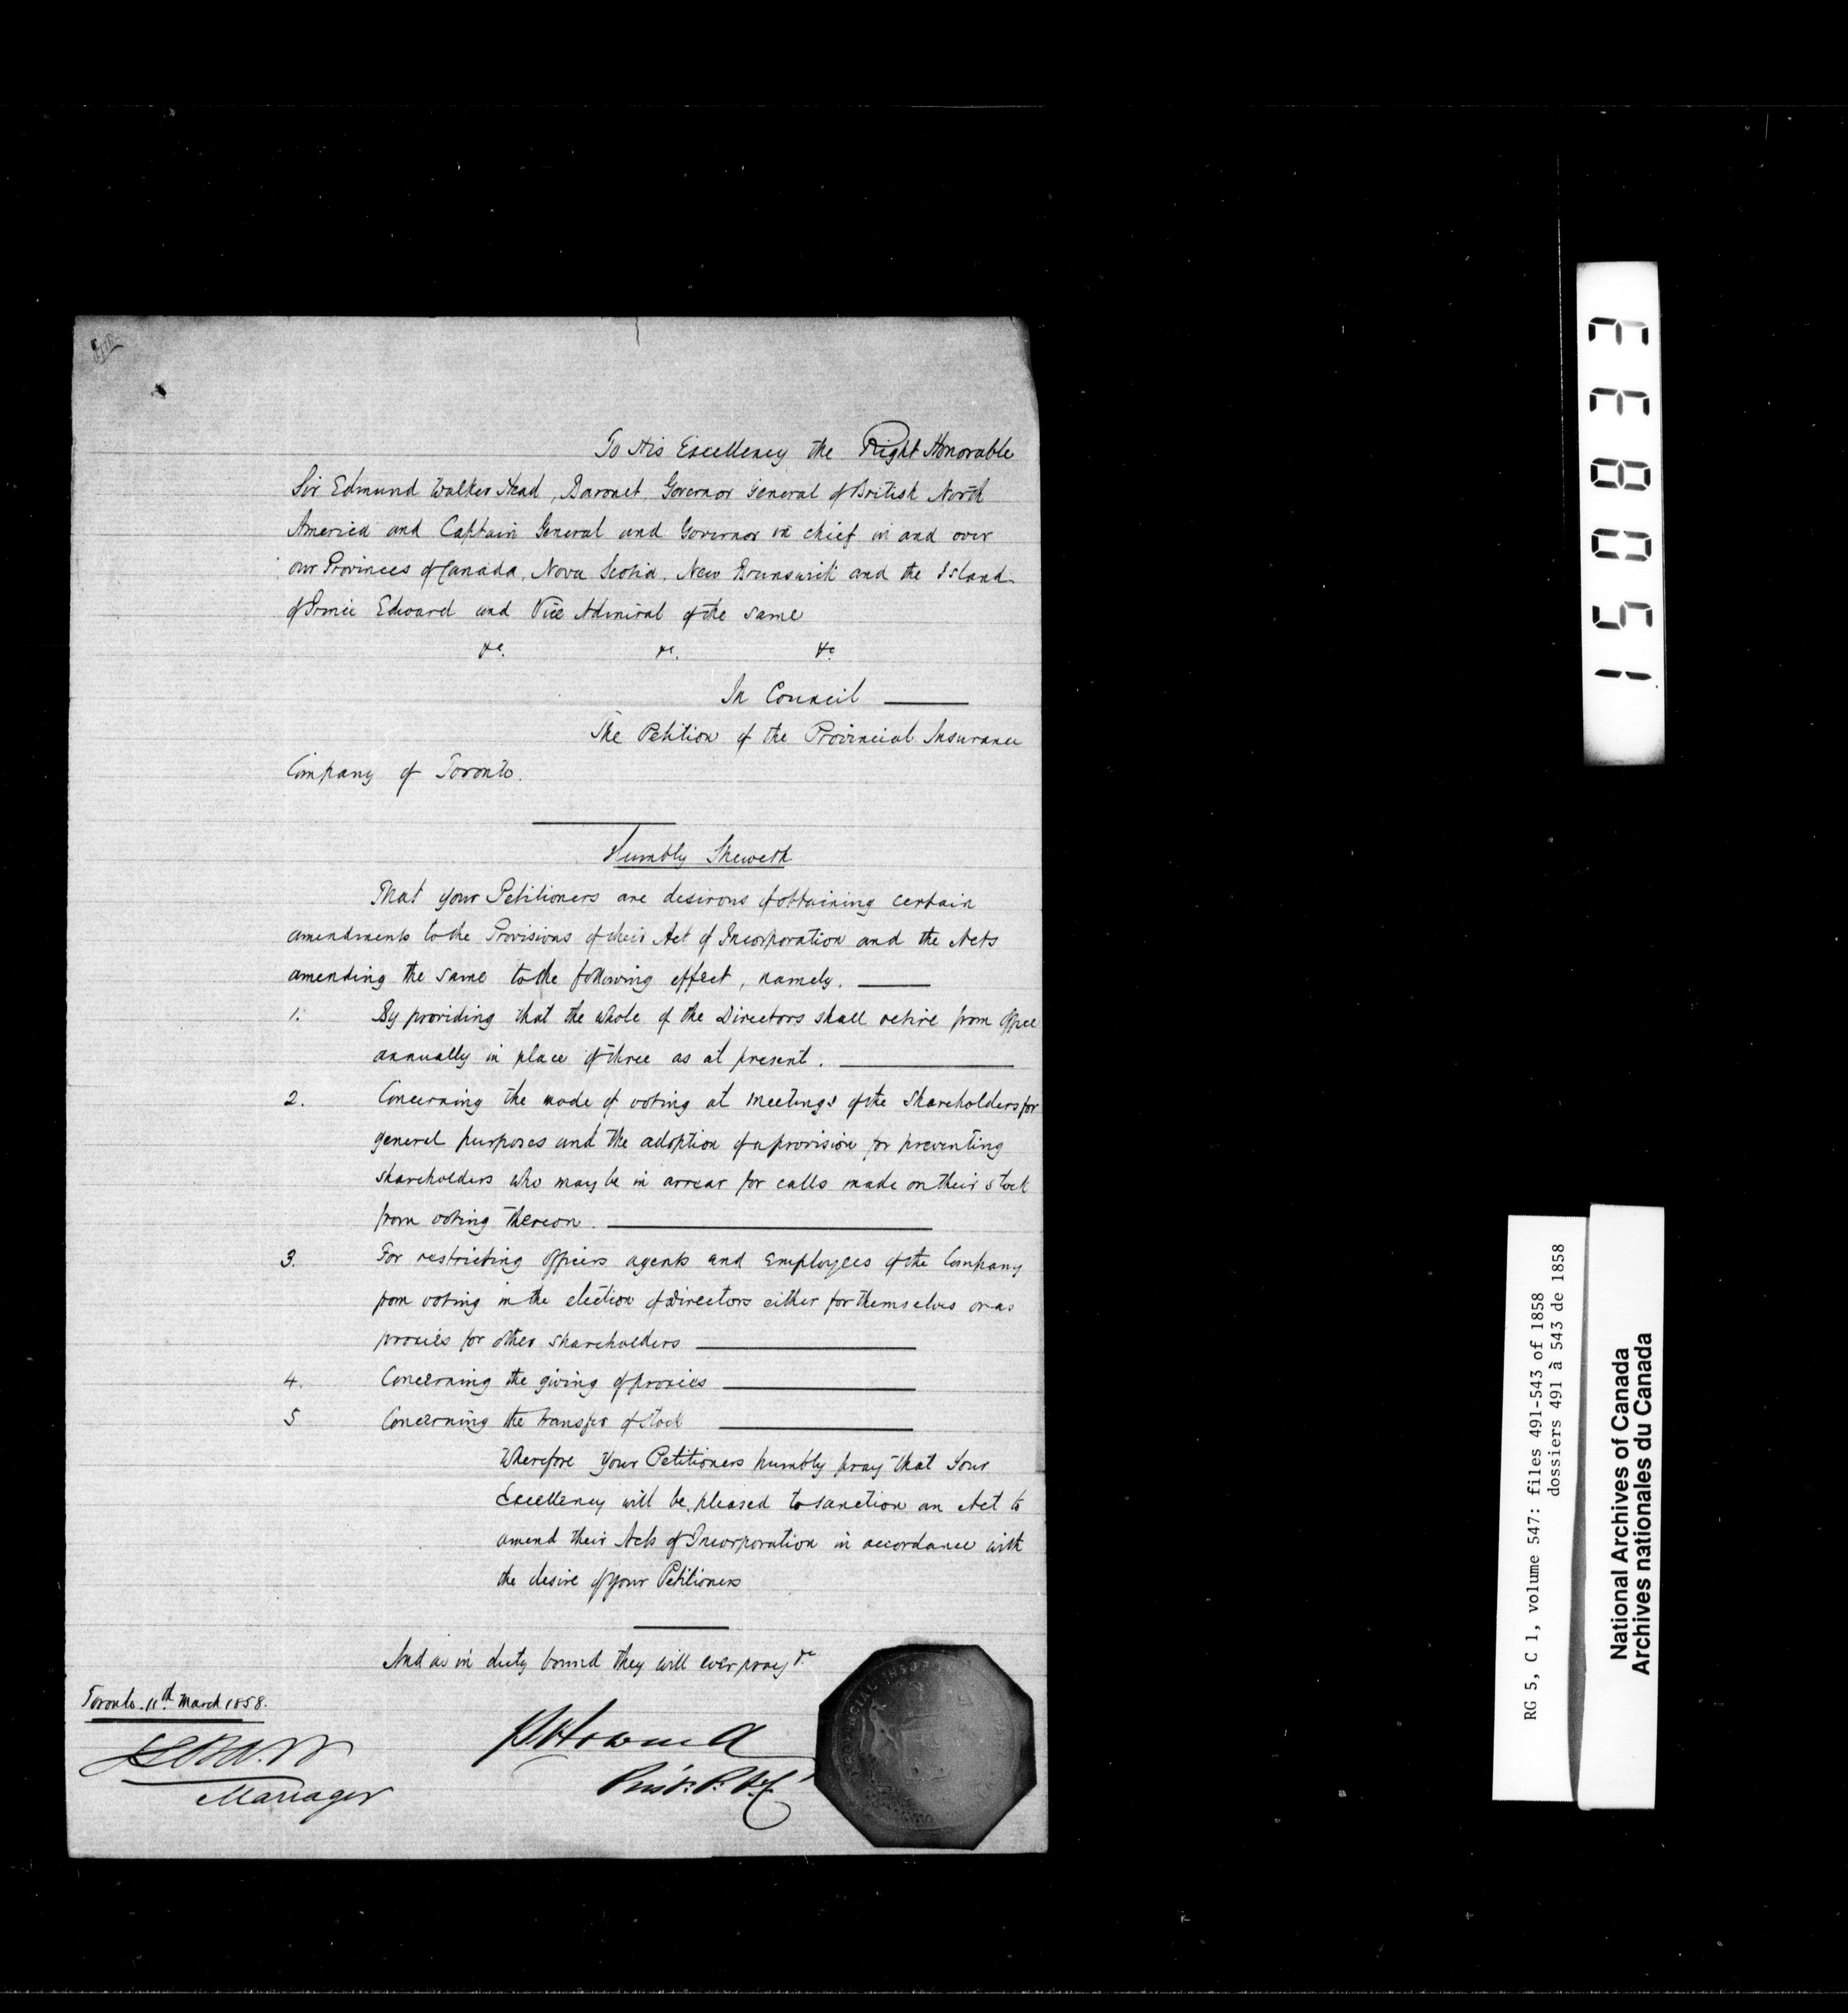 To His Excellency the Right Honorable
Sir Edmund Walker Head, Baronet, Governor General of British North
America and Captain General and Governor in chief in and over
our Provinces of Canada, Nova Scotia, New Brunswick and the Island
of Prince Edward and Vice Admiral of the same
&c. &c. &c
In Council
The Petition of the Provincial Insurance
Company of Toronto.
Humbly Sheweth
That your Petitioners are desirous of obtaining certain
amendments to the Provisions of their Act of Incorporation and the Acts
amending the same to the following effect, namely.
1. By providing that the whole of the Directors shall retire from office
annually in place of three as at present.
2. Concerning the mode of voting at meetings of the Shareholders for
general purposes and the adoption of a provision for preventing
shareholders who may be in arrear for calls made on their stock
from voting thereon.
3. For restricting officers agents and Employees of the Company
from voting in the election of Directors either for themselves or as
proxies for other shareholders
4. Concerning the giving of proxies
5 Concerning the transfer of Stock
Wherefore Your Petitioners humbly pray that Your
Excellency will be pleased to sanction an Act to
amend their Acts of Incorporation in accordance with
the desire of your Petitioners
And as in duty bound they will ever pray &c
Toronto. 11th March 1858.
Manager
PROVINCIAL INSUR
150833
RG 5, C 1, volume 547: files 491-543 of 1858
dossiers 491 à 543 de 1858
National Archives of Canada
Archives nationales du Canada